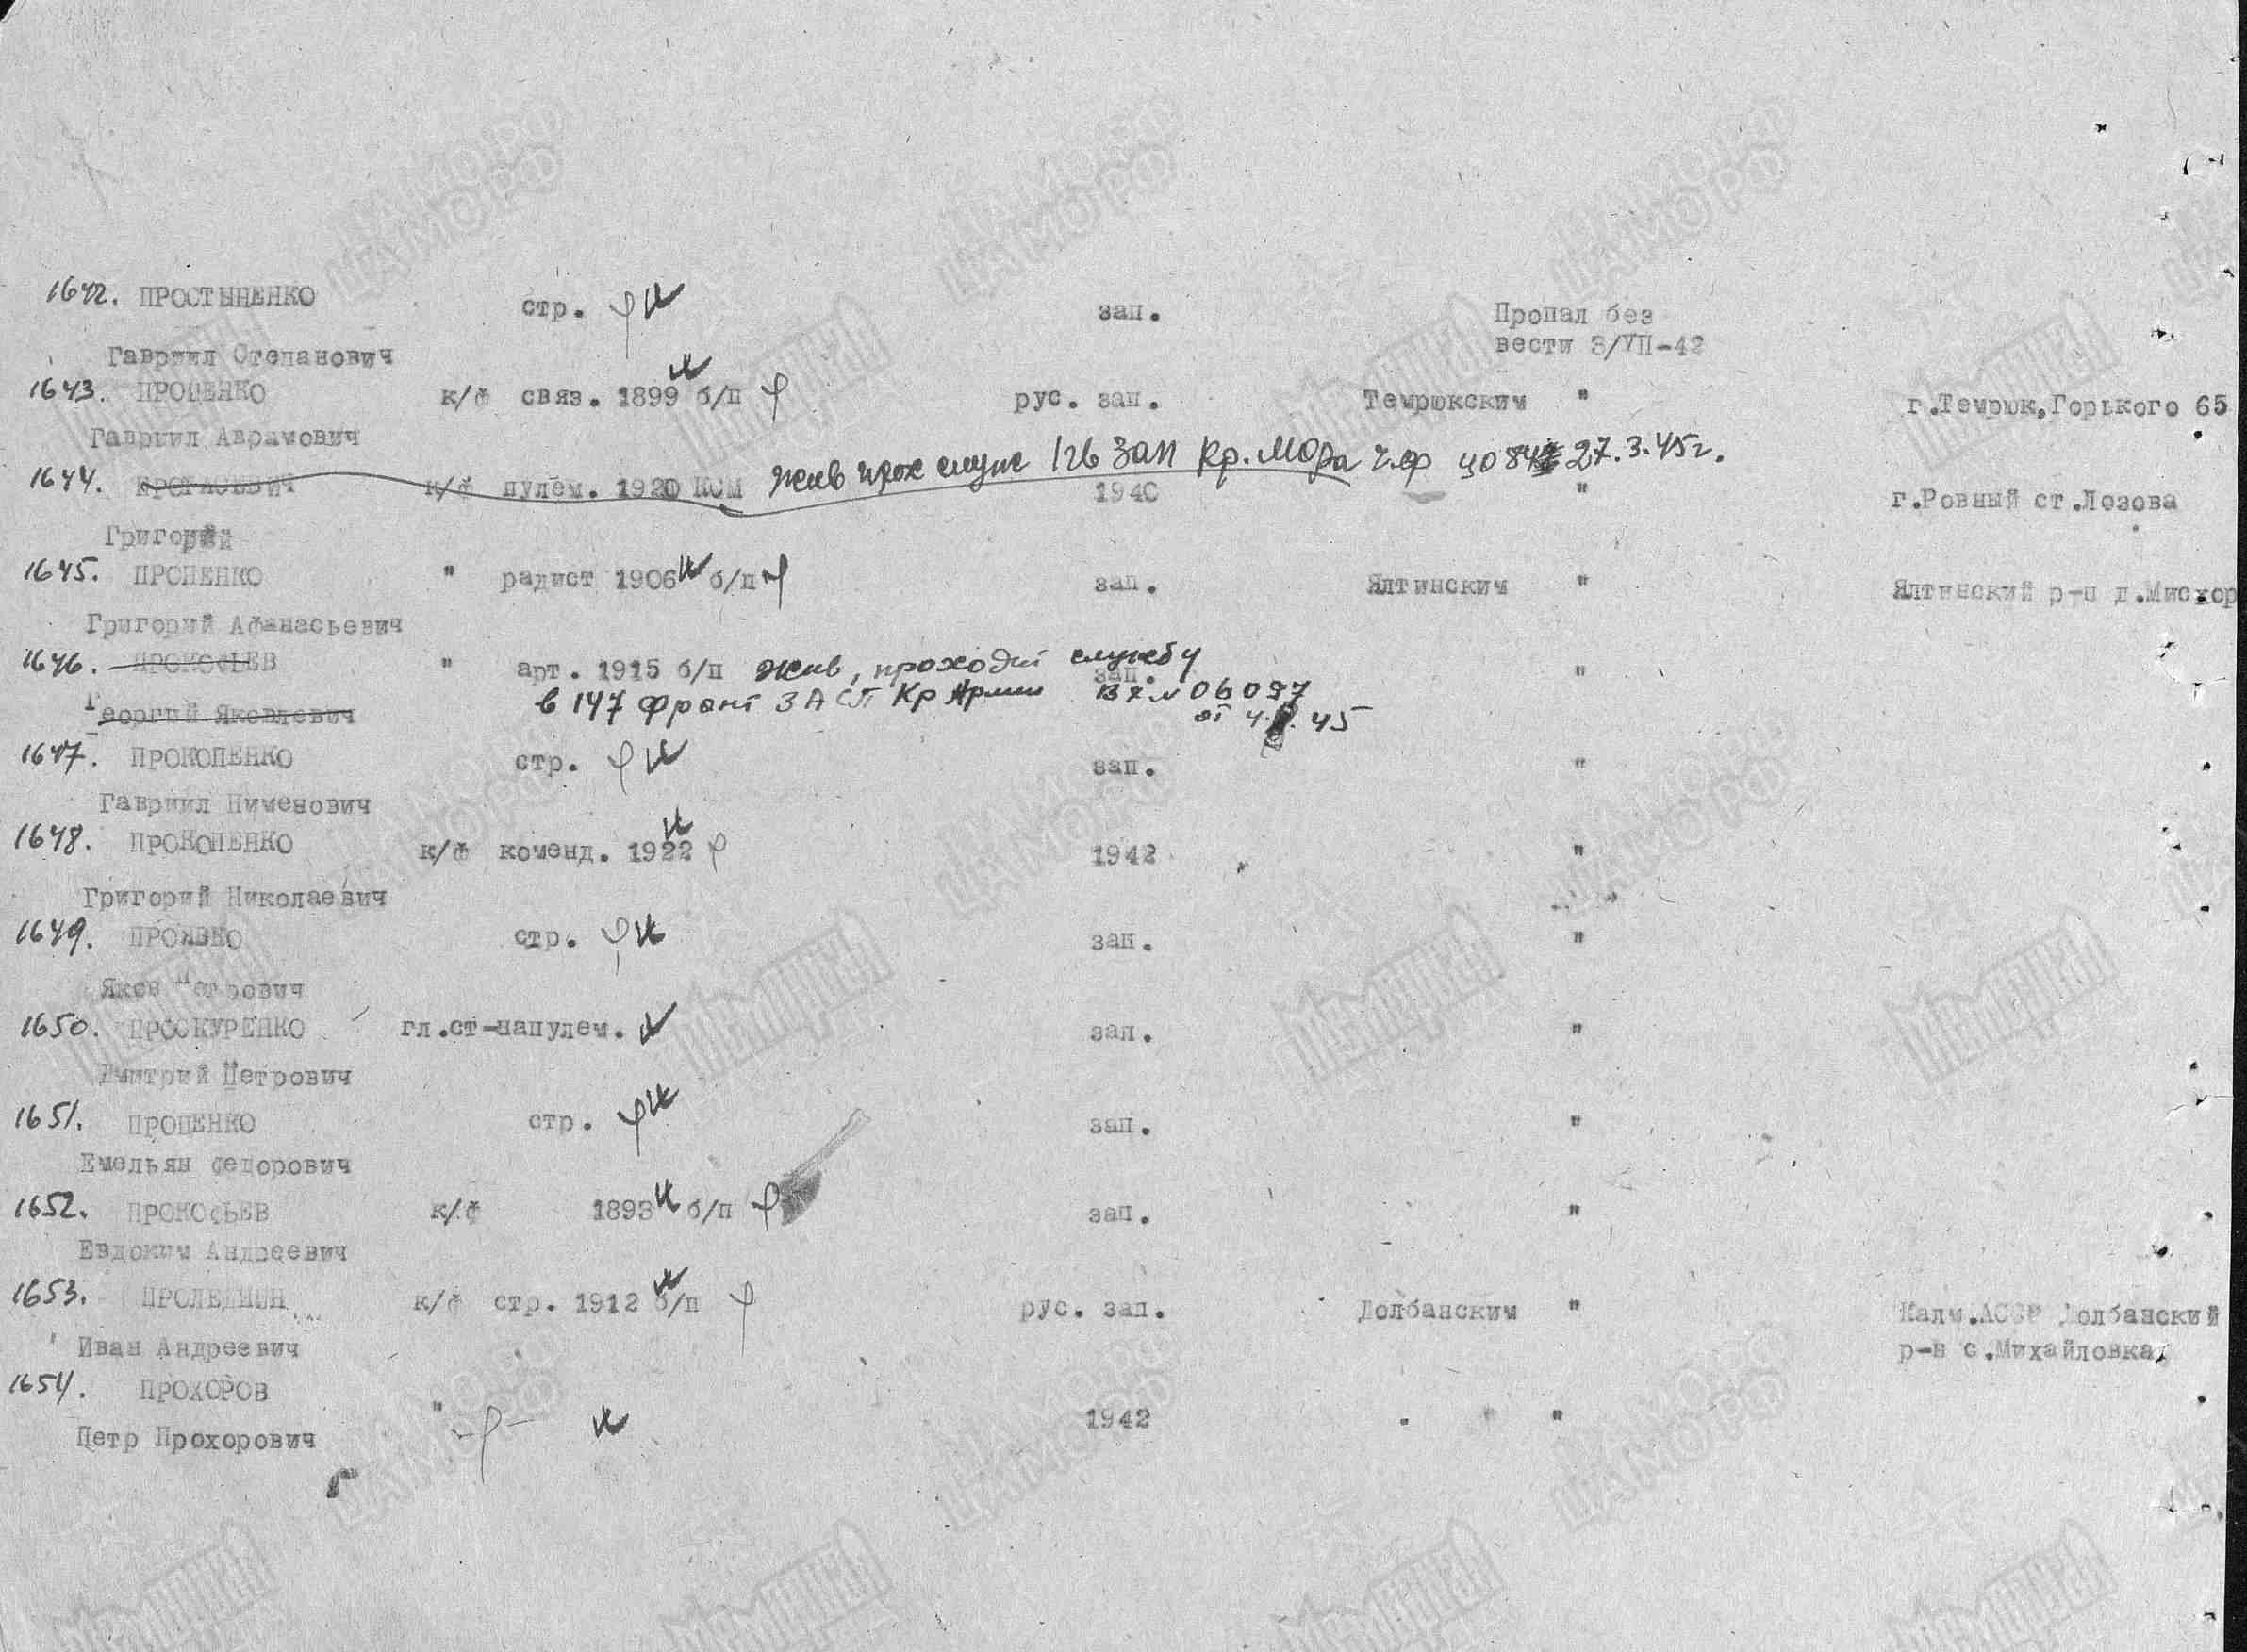 1642. ПРОСТЫНЕНКО стр. зап. Пропал без
Гавриил Степанович вести 3/VII-42
1643. ПРОЦЕНКО к/ф связ. 1899 б/п рус. зап. Темрюкским " г.Темрюк,Горького 65
Гавриил Аврамович
жив прох служ 1гв зап Кр. 27.3.45г.
1644. к/ф пулем. 1920 КСМ 1940 " г.Ровный ст.Лозова
Григорий
1645. ПРОЦЕНКО " радист 1906 б/п зап. Ялтинским " Ялтинский р-н д.Мисхор
Григорий Афанасьевич
1646. ПРОКОФЬЕВ " арт. 1915 б/п жив, проходит службу зап. "
Георгий Яковлевич в 147 фронт ЗАСП Кр Армии Вх № 06097
от 4. .45
1647. ПРОКОПЕНКО стр. зап. "
Гавриил Пименович
1648. ПРОКОПЕНКО к/ф команд. 1922 1942 "
Григорий Николаевич
1649. ПРОЯВКО стр. зап. "
Яков Петрович
1650. ПРОСКУРЕНКО гл.ст-напулем. зап. "
Дмитрий Петрович
1651. ПРОЦЕНКО стр. зап. "
Емельян Федорович
1652. ПРОКОФЬЕВ к/ф 1893 б/п зап. "
Евдоким Андреевич
1653. к/ф стр. 1912 б/п рус. зап. Долбанским " Калм.АССР Долбанский
Иван Андреевич р-н с.Михайловка
1654. ПРОХОРОВ " 1942 " "
Петр Прохорович